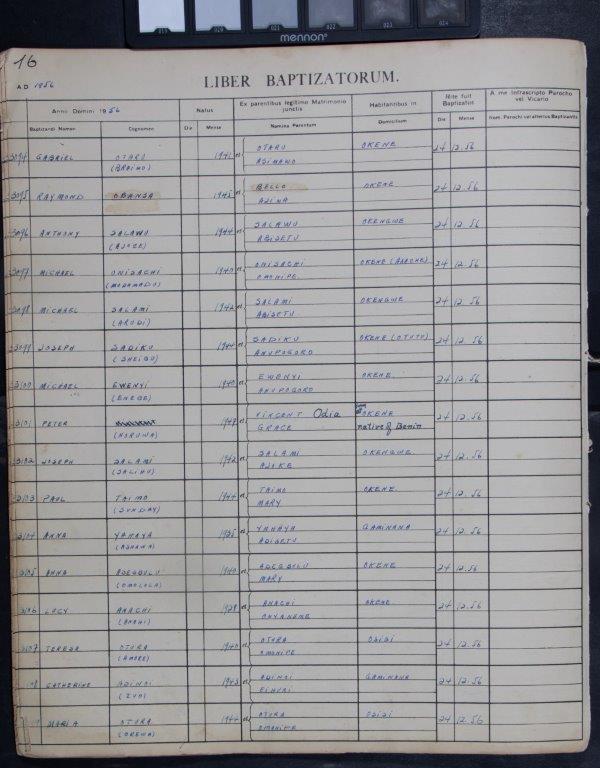 019 020 021 022 023 024
mennon
16
LIBER BAPTIZATORUM.
A D 1956
Anno Domini 1956 Natus Ex parentibus legitimo Matrimonio junctis Habitantibus in Rite fuit Baptizatus A me Infrascripto Parocho vel Vicario
Baptizandi Nomen Cognomen Die Mense Nomina Parentum Domicilium Die Mense Nom. Parochi vel alterius Baptizantis
3094 GABRIEL OTARU 1941 OTARU OKENE 24 12.56
(BRAIMO) ASIMAWO
3095 RAYMOND OBANSA 1945 BELLO OKENE 24 12.56
AZINA
3096 ANTHONY SALAWU 1944 SALAWU OKENGWE 24 12.56
ABISETU
3097 MICHAEL ONISACHI 1940 ONISACHI OKENE 24 12.56
(MOHAMADU) OMOHIPE
3098 MICHAEL SALAMI 1942 SALAMI OKENGWE 24 12.56
(ARUDI) ABISETU
3099 JOSEPH SADIKU 1944 SADIKU OKENE (OTUTU) 24 12.56
(SHEIBU) ANUPOGORO
3100 MICHAEL EWENYI 1940 EWENYI OKENE 24 12.56
(ENEGE) ANUPOGORO
3101 PETER 1947 VINCENT Odia OKENE 24 12.56
(NORUWA) GRACE native of Benin
3102 JOSEPH SALAMI 1942 SALAMI OKENGWE 24 12.56
(SALIHU) AJOKE
3103 PAUL TAIMO 1944 TAIMO OKENE 24 12.56
(SUNDAY) MARY
3104 ANNA YAHAYA 1935 YAHAYA GAMINANA 24 12.56
ADISETU
3105 ANNA ADEGBULU 1940 ADEGBULU OKENE 24 12.56
(OMOLOLA) MARY
3106 LUCY ANACHI 1928 ANACHI OKENE 24 12.56
ONYANEME
3107 TERESA OTURA 1940 OTURA OSISI 24 12.56
OMOHIPE
CATHERINE ADINOI 1943 ADINOI GAMINANA 24 12.56
MARIA OTURA 1944 OTURA OSISI 24 12.56
(OREWA) OMOHIPE